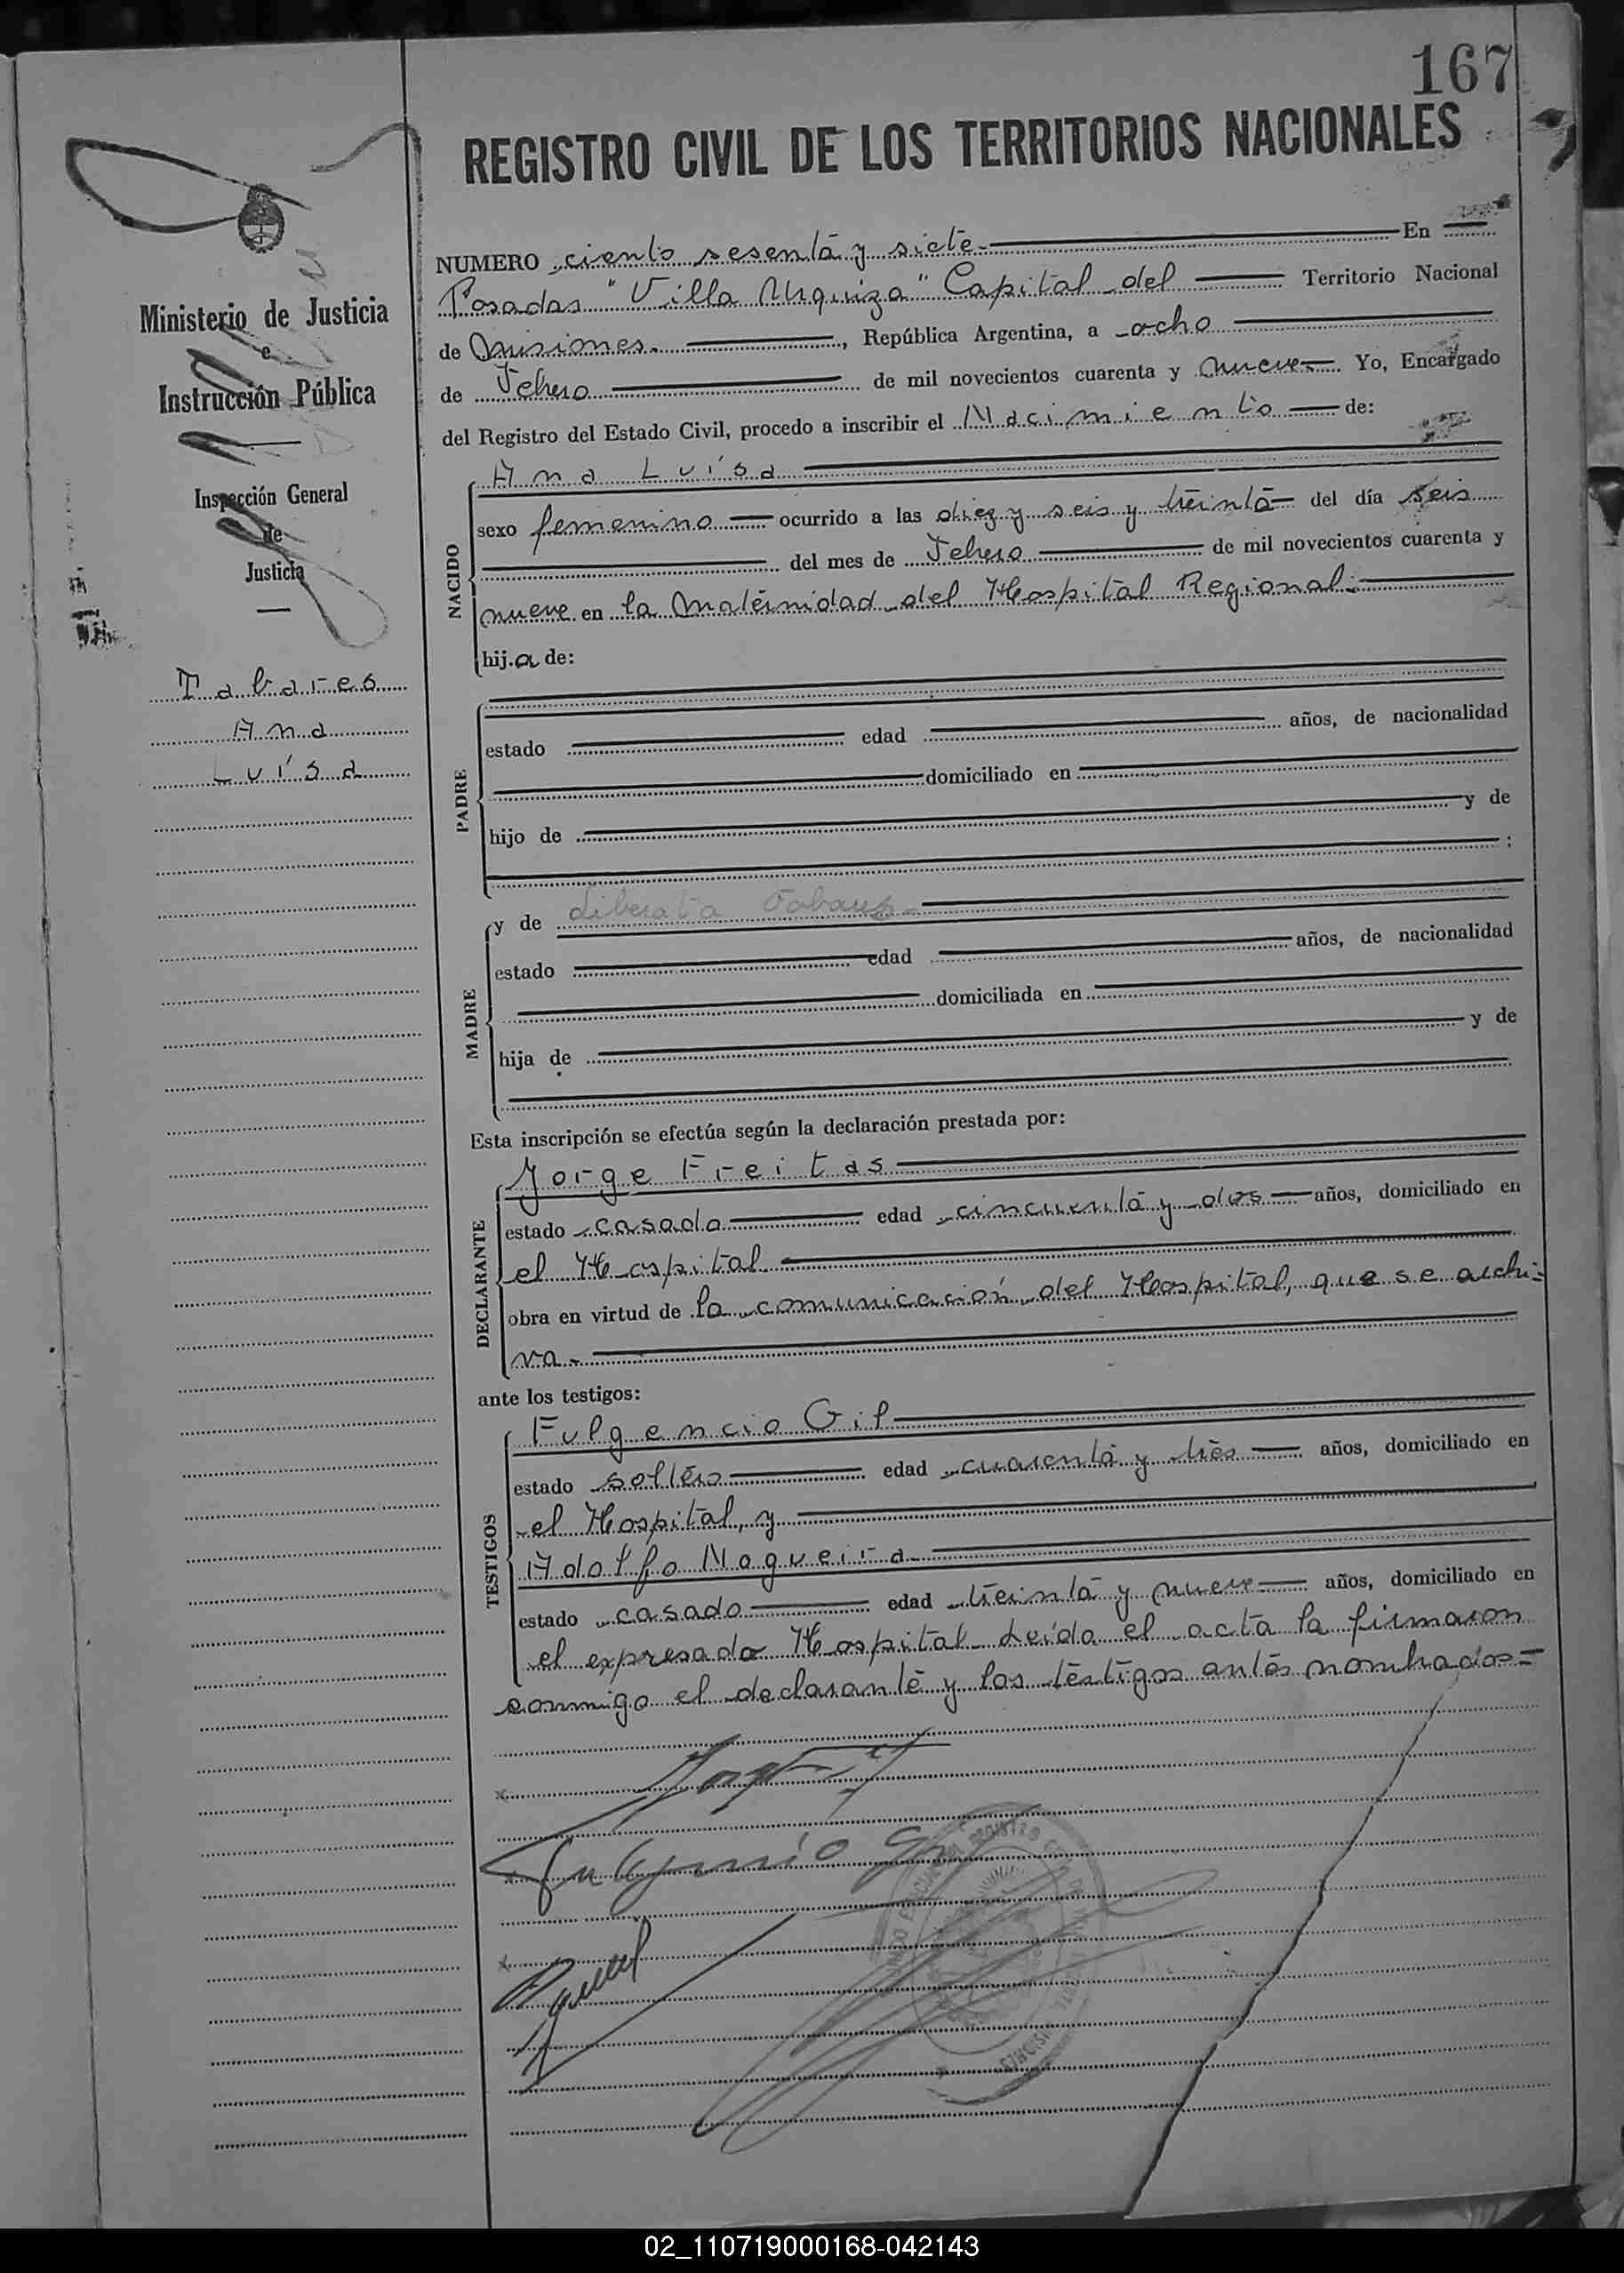 167
REGISTRO CIVIL DE LOS TERRITORIOS NACIONALES
Ministerio de Justicia
e
Instrucción Pública
Inspección General
de
Justicia
Tabares
Ana
Luísa
NUMERO ciento sesenta y siete.- En
Posadas "Villa Urquiza" Capital del Territorio Nacional
de Misiones.- , República Argentina, a ocho
de Febrero de mil novecientos cuarenta y nueve Yo, Encargado
del Registro del Estado Civil, procedo a inscribir el Nacimiento de:
NACIDO
Ana Luísa
sexo femenino ocurrido a las diez y seis y treinta del día seis
del mes de Febrero de mil novecientos cuarenta y
nueve en la Maternidad del Hospital Regional.-
hija de:
PADRE
estado edad años, de nacionalidad
domiciliado en
hijo de y de
;
MADRE
y de Liberata Tabares
estado edad años, de nacionalidad
domiciliada en
hija de y de
Esta inscripción se efectúa según la declaración prestada por:
DECLARANTE
Jorge Freitas
estado casado edad cincuenta y dos años, domiciliado en
el Hospital.
obra en virtud de la comunicación del Hospital, que se archi=
va.-
ante los testigos:
TESTIGOS
Fulgencio Gil
estado soltero edad cuarenta y tres años, domiciliado en
el Hospital, y
Adolfo Nogueira
estado casado edad treinta y nueve años, domiciliado en
el expresado Hospital. Leída el acta la firmaron
conmigo el declarante y los testigos antes nombrados=
Fulgencio Gil
02_110719000168-042143